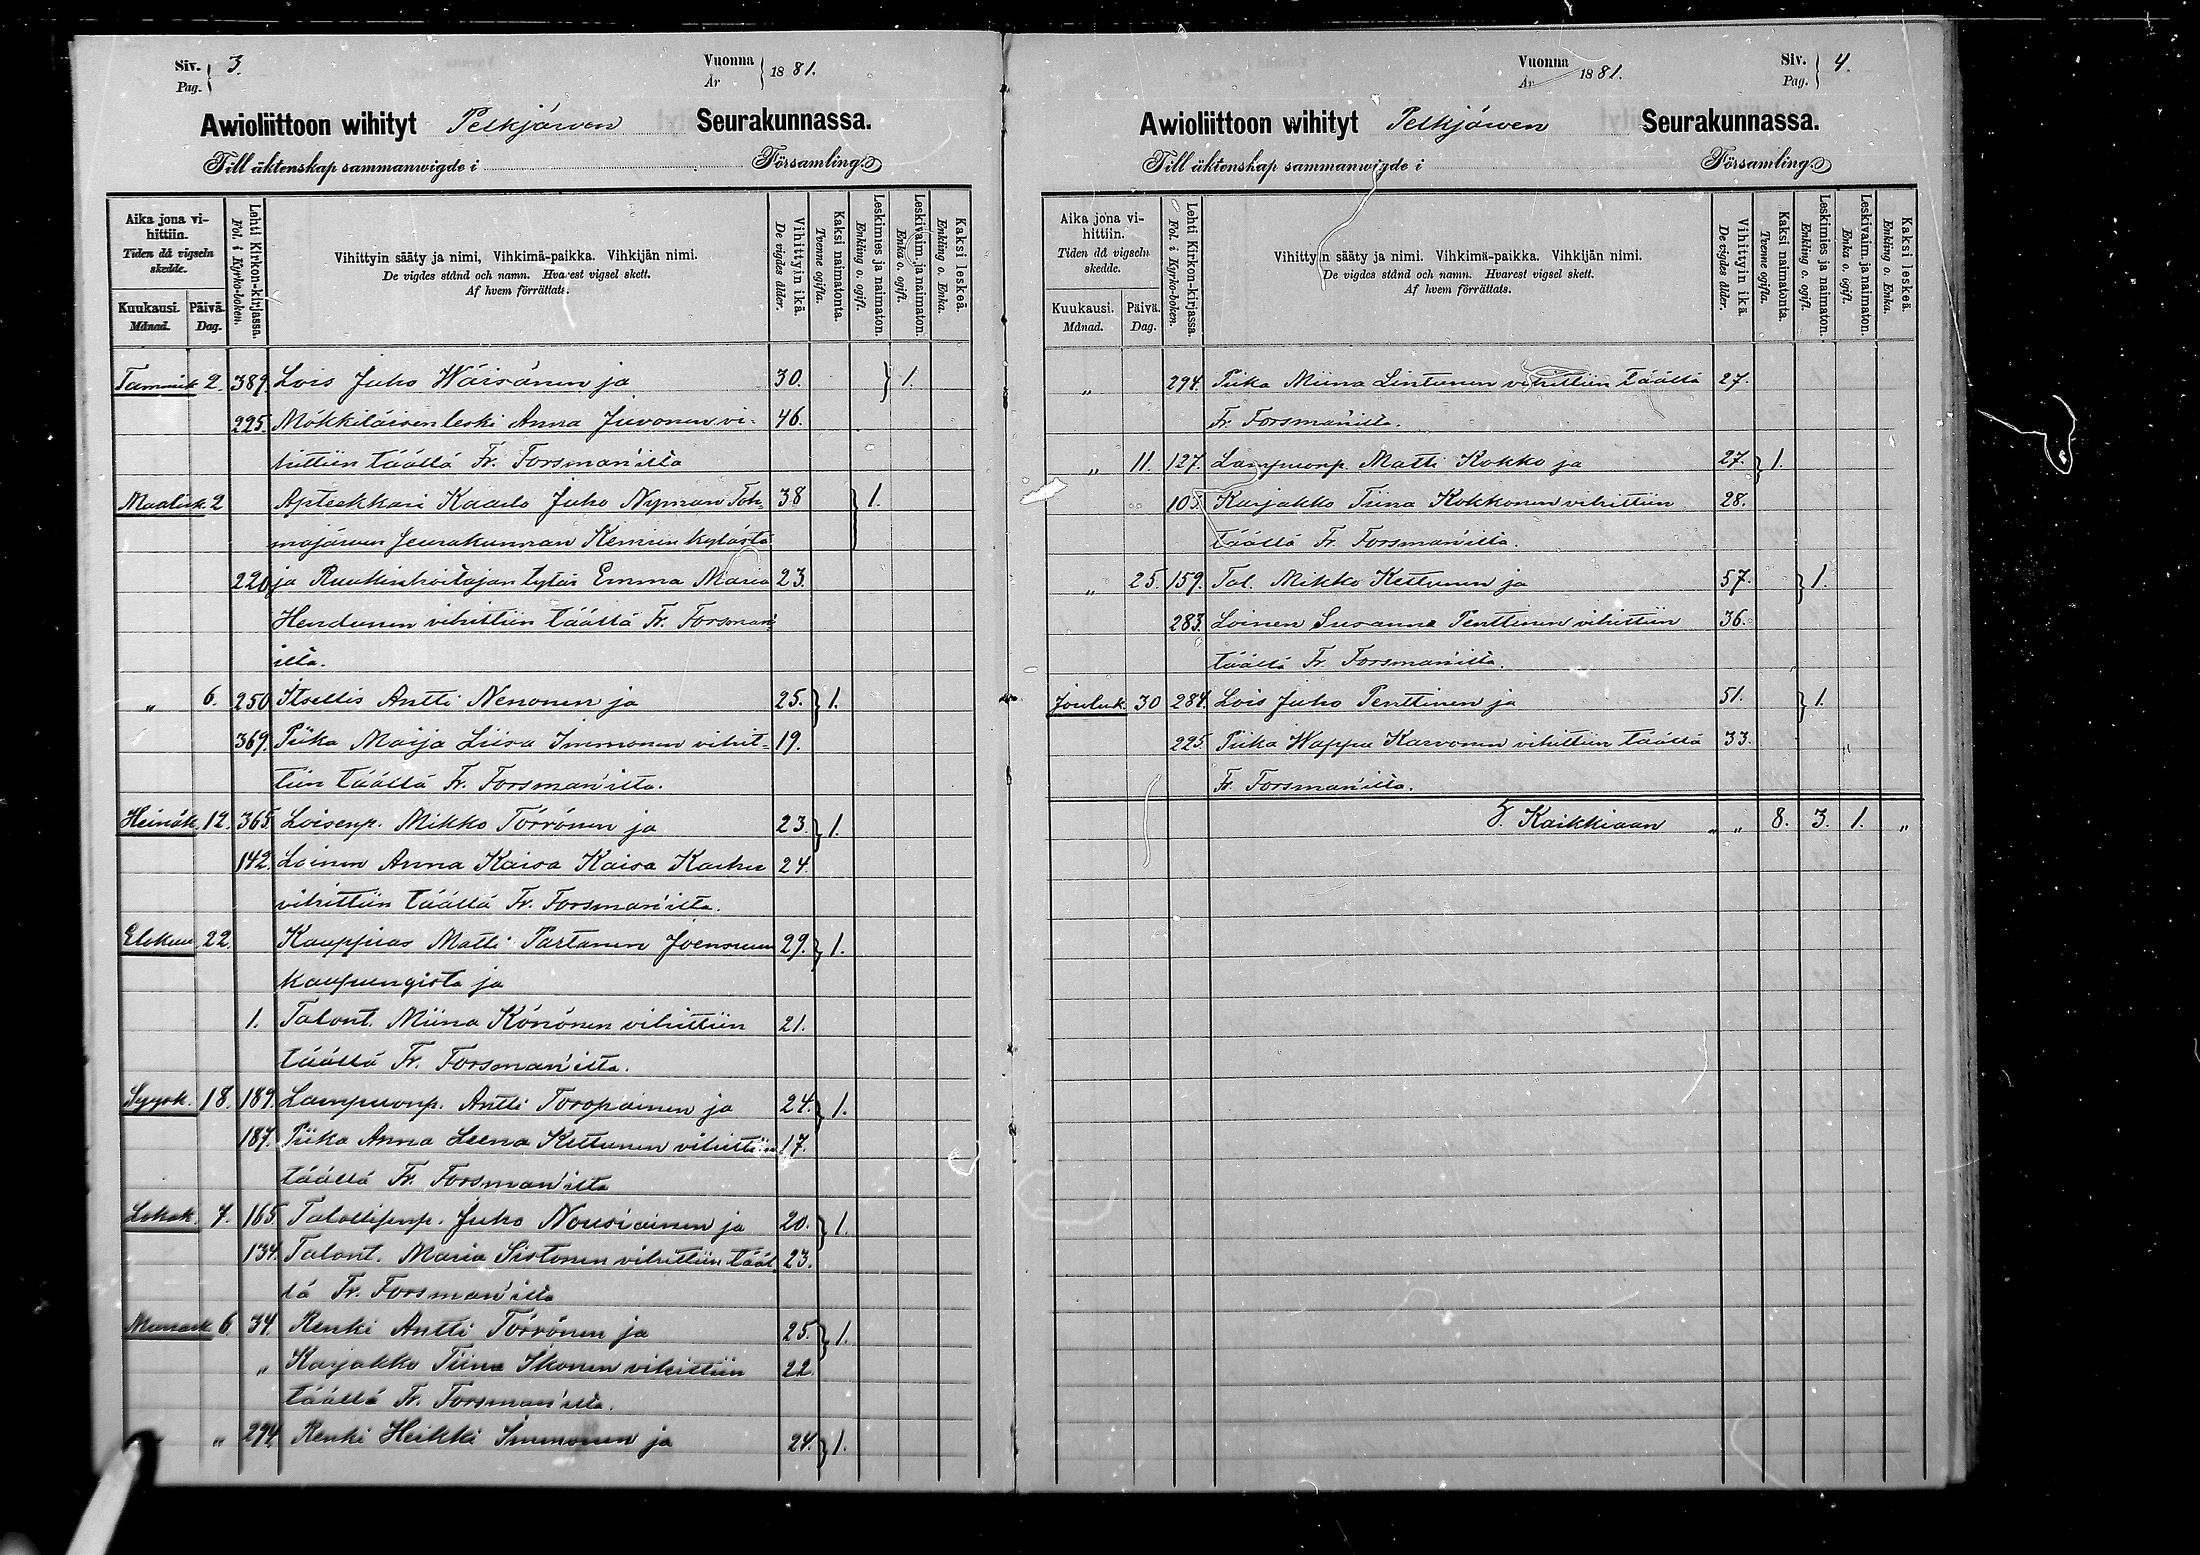 Siv. 3.
Pag.
Vuonna 1881.
År
Awioliittoon wihityt Pelkjärwen Seurakunnassa.
Till äktenskap sammanwigde i Församling.
Aika jona vihittiin.
Tiden då vigseln skedde.
Kuukausi. Månad.
Päivä. Dag.
Lehti Kirkon-kirjassa.
Fol. i Kyrko-boken.
Vihittyin sääty ja nimi, Vihkimä-paikka. Vihkijän nimi.
De vigdes stånd och namn. Hvarest vigsel skett.
Af hvem förrättats.
Vihittyin ikä.
De vigdes ålder.
Kaksi naimatonta.
Tvenne ogifta.
Leskimies ja naimaton.
Enkling o. ogift.
Leskivaim. ja naimaton.
Enka o. ogift.
Kaksi leskeä.
Enkling o. Enka.
Tammik 2. 389. Lois Juho Wäisänen ja 30. } 1.
225. Mökkiläisen leski Anna Juvonen vi- 46.
hittiin täällä Fr. Forsman'ilta
Maalisk. 2 Apteekkari Kaarlo Juho Nyman Toh- 38 } 1.
majärven Seurakunnan Kemien kylästä
220 ja Ruukinhoitajan tytär Emma Maria 23.
Hendunen vihittiin täällä Fr. Forsman'
ilta.
„ 6. 250 Itsellis Antti Nenonen ja 25. } 1.
369. Piika Maija Liisa Immonen vihit- 19.
tiin täällä Fr. Forsman'ilta.
Heinäk. 12. 365. Loisenp. Mikko Törrönen ja 23. } 1.
142. Loinen Anna Kaisa Kaisa Karhu 24.
vihittiin täällä Fr. Forsman'ilta.
Elokuu 22. Kauppias Matti Partanen Joensuun 29. } 1.
kaupungista ja
1. Talont. Miina Könönen vihittiin 21.
täällä Fr. Forsman'ilta.
Syysk. 18. 189. Lampuonp. Antti Toropainen ja 24. } 1.
187. Piika Anna Leena Kettunen vihittiin 17.
täällä Fr. Forsman'ilta
Lokak. 7. 165. Talollisenp. Juho Nousiainen ja 20. } 1.
134. Talont. Maria Sistonen vihittiin tääl 23.
lä Fr. Forsman'ilta
Marrask 6. 34. Renki Antti Törrönen ja 25. } 1.
„ Karjakko Tiina Ikonen vihittiin 22
täällä Fr. Forsman'ilta.
„ 294. Renki Heikki Immonen ja 24. } 1.
Vuonna 1881.
År
Siv. 4.
Pag.
Awioliittoon wihityt Pelkjärwen Seurakunnassa.
Till äktenskap sammanwigde i Församling.
Aika jona vihittiin.
Tiden då vigseln skedde.
Kuukausi. Månad.
Päivä. Dag.
Lehti Kirkon-kirjassa.
Fol. i Kyrko-boken.
Vihittyin sääty ja nimi. Vihkimä-paikka. Vihkijän nimi.
De vigdes stånd och namn. Hvarest vigsel skett.
Af hvem förrättats.
Vihittyin ikä.
De vigdes ålder.
Kaksi naimatonta.
Tvenne ogifta.
Leskimies ja naimaton.
Enkling o. ogift.
Leskivaim. ja naimaton.
Enka o. ogift.
Kaksi leskeä.
Enkling o. Enka.
„ 294. Piika Miina Lintunen vihittiin täällä 27.
Fr. Forsman'ilta.
„ 11. 127. Lampuonp. Matti Kokko ja 27. } 1.
105. Karjakko Tiina Kokkonen vihittiin 28.
täällä Fr. Forsman'ilta.
„ 25. 159. Tal. Mikko Kettunen ja 57. } 1.
283. Loinen Susanna Penttinen vihittiin 36.
täällä Fr. Forsman'ilta.
Jouluk. 30 284. Lois Juho Penttinen ja 51. } 1.
225. Piika Wappu Karvonen vihittiin täällä 33.
Fr. Forsman'ilta.
Kaikkiaan „ „ 8. 3. 1. „